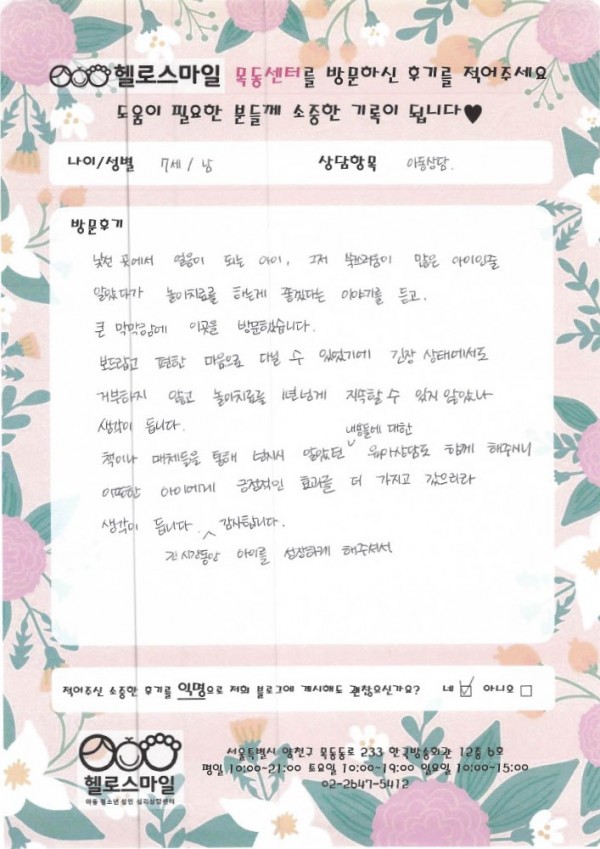 헬로스마일 목동센터를 방문하신 후기를 적어주세요
도움이 필요한 분들께 소중한 기록이 됩니다♥
나이/성별 7세 / 남 상담항목 아동상담.
방문후기
낯선 곳에서 얼음이 되는 아이, 그저 부끄러움이 많은 아이인줄
알았다가 놀이치료를 하는게 좋겠다는 이야기를 듣고.
큰 막막함에 이곳을 방문했습니다.
보드랍고 편한 마음으로 다닐 수 있었기에 긴장 상태에서도
거부하지 않고 놀이치료를 1년넘게 지속할 수 있지 않았나
생각이 듭니다.
내용들에 대한
책이나 매체들을 통해 알았던 육아상담도 함께 해주시니
아이에게 긍정적인 효과를 더 가지고 갔으리라
생각이 듭니다. 감사합니다.
긴 시간동안 아이를 성장하게 해주셔서
적어주신 소중한 후기를 익명으로 저희 블로그에 게시해도 괜찮으신가요? 네 ☑ 아니오 □
헬로스마일
아동 청소년 성인 심리상담센터
서울특별시 양천구 목동동로 233 한국방송회관 12층 6호
평일 10:00~21:00 토요일 10:00~19:00 일요일 10:00~15:00
02-2647-5412